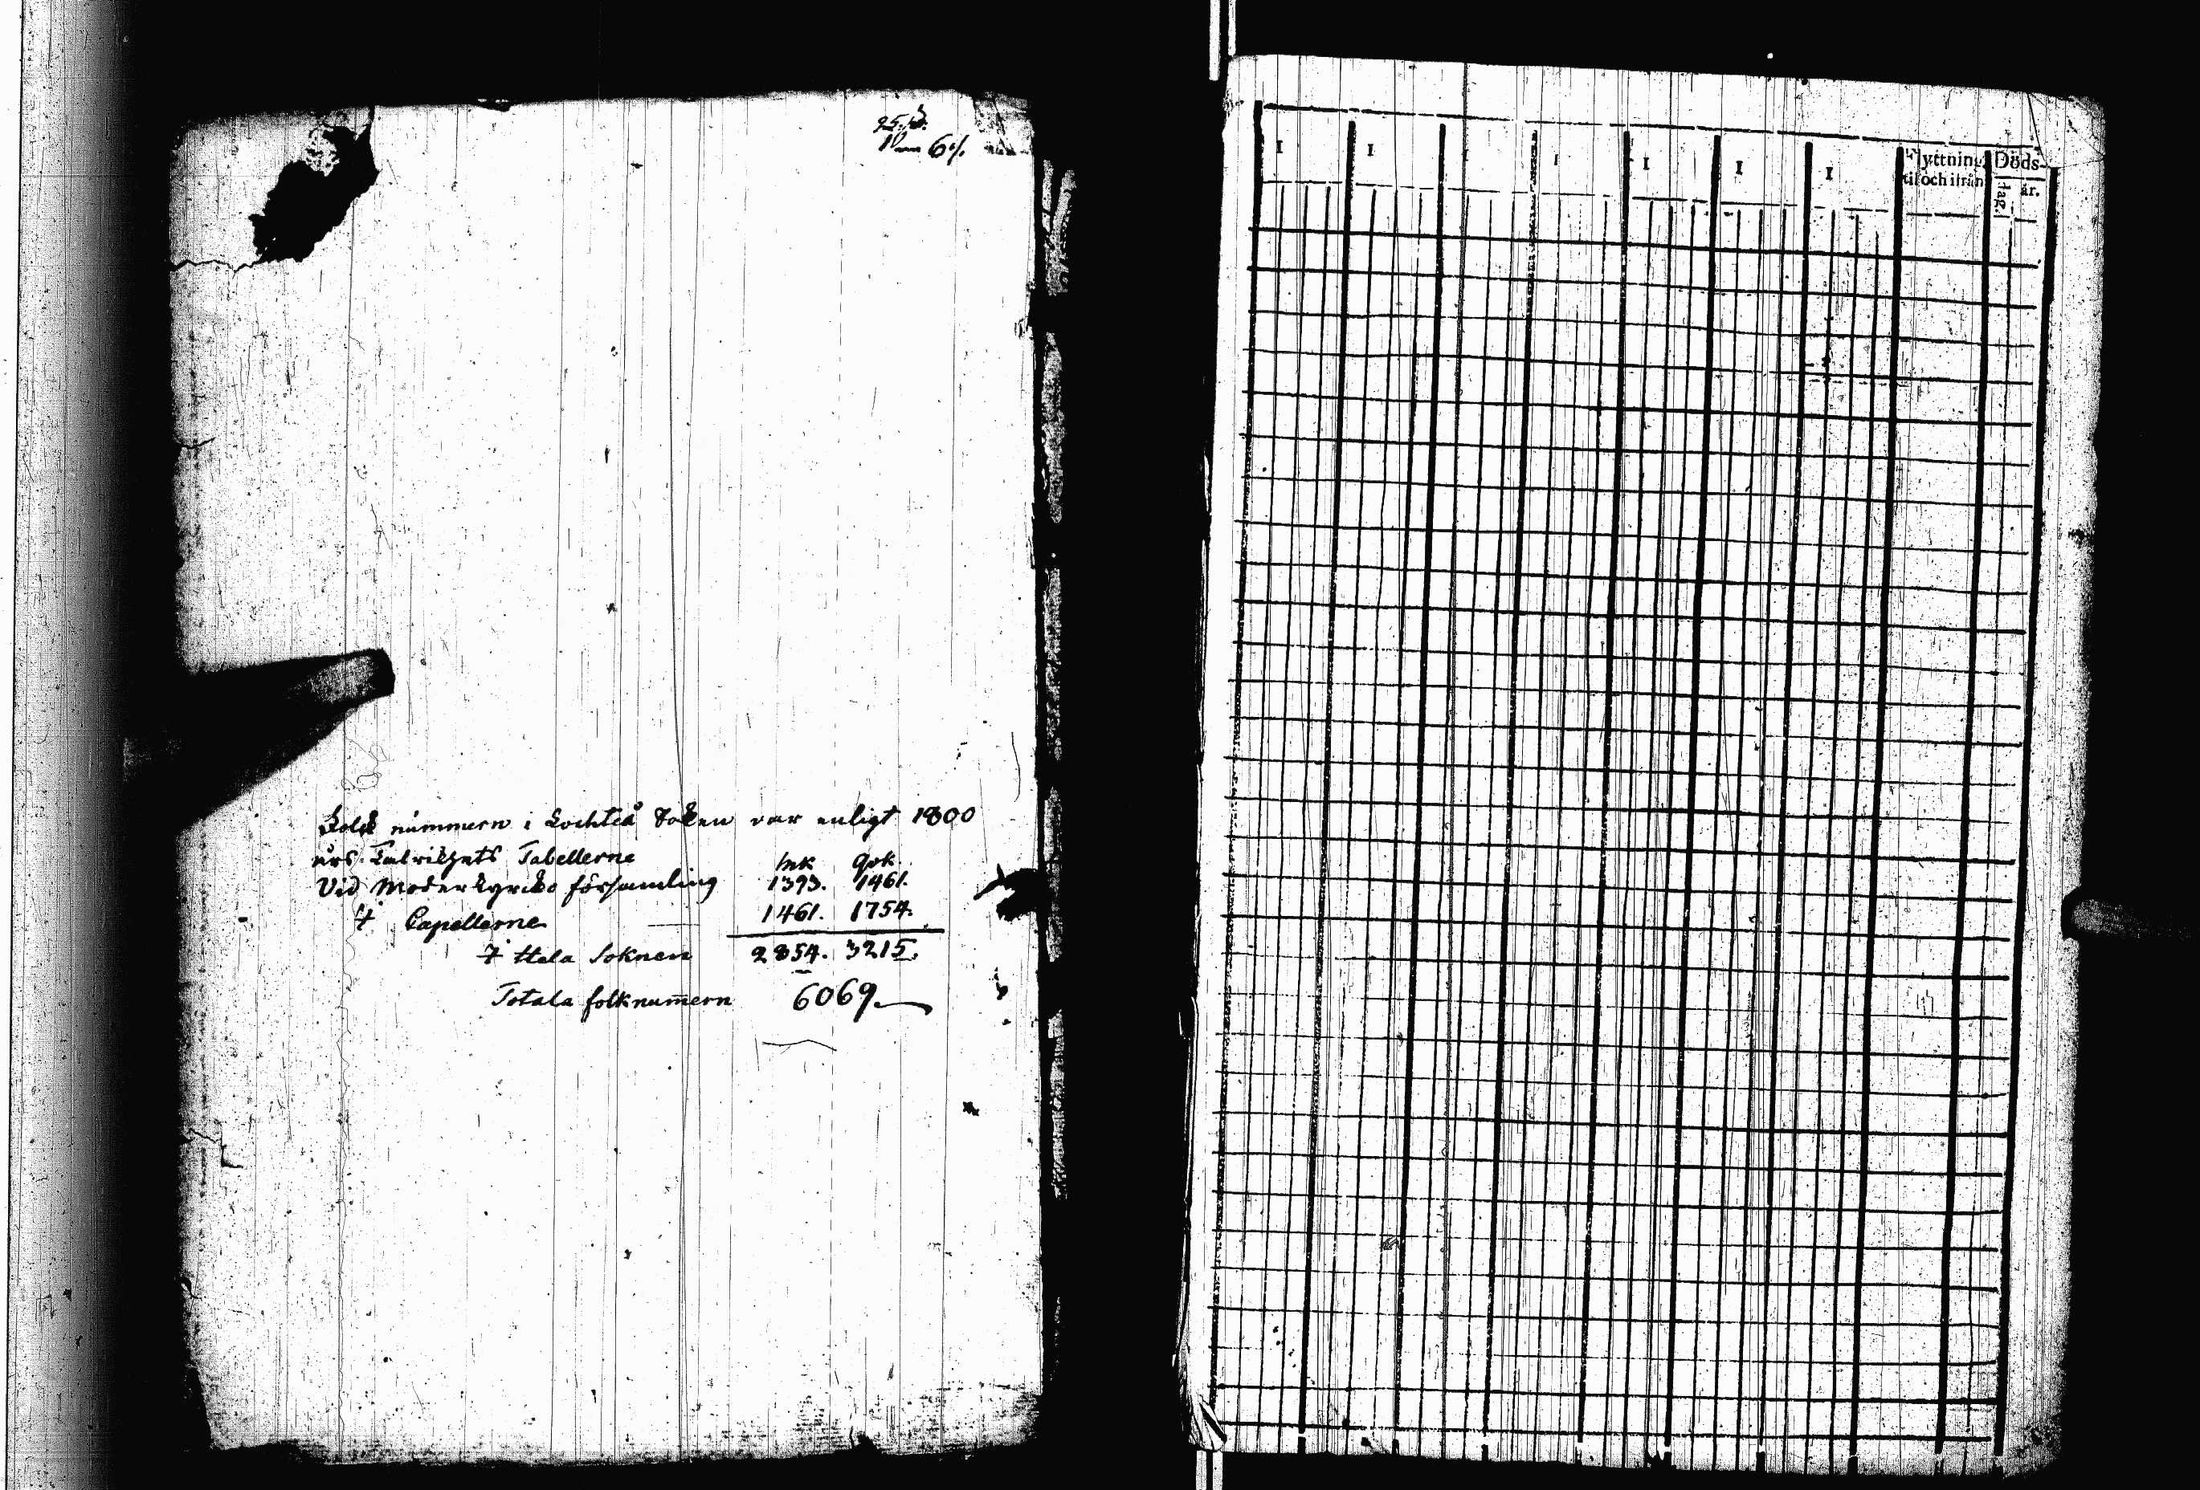 25.
6
Folk nummern i Lochteå Soken var enligt 1800
års Tabellerne
mk qvk.
Vid Moderkyrko församling 1393. 1461.
Capellerne 1461. 1754.
i Hela Soknen 2854. 3215.
Totala folknum̅ern 6069.
I I I I I I I Flyttning Döds-
till och ifrån dag. år.